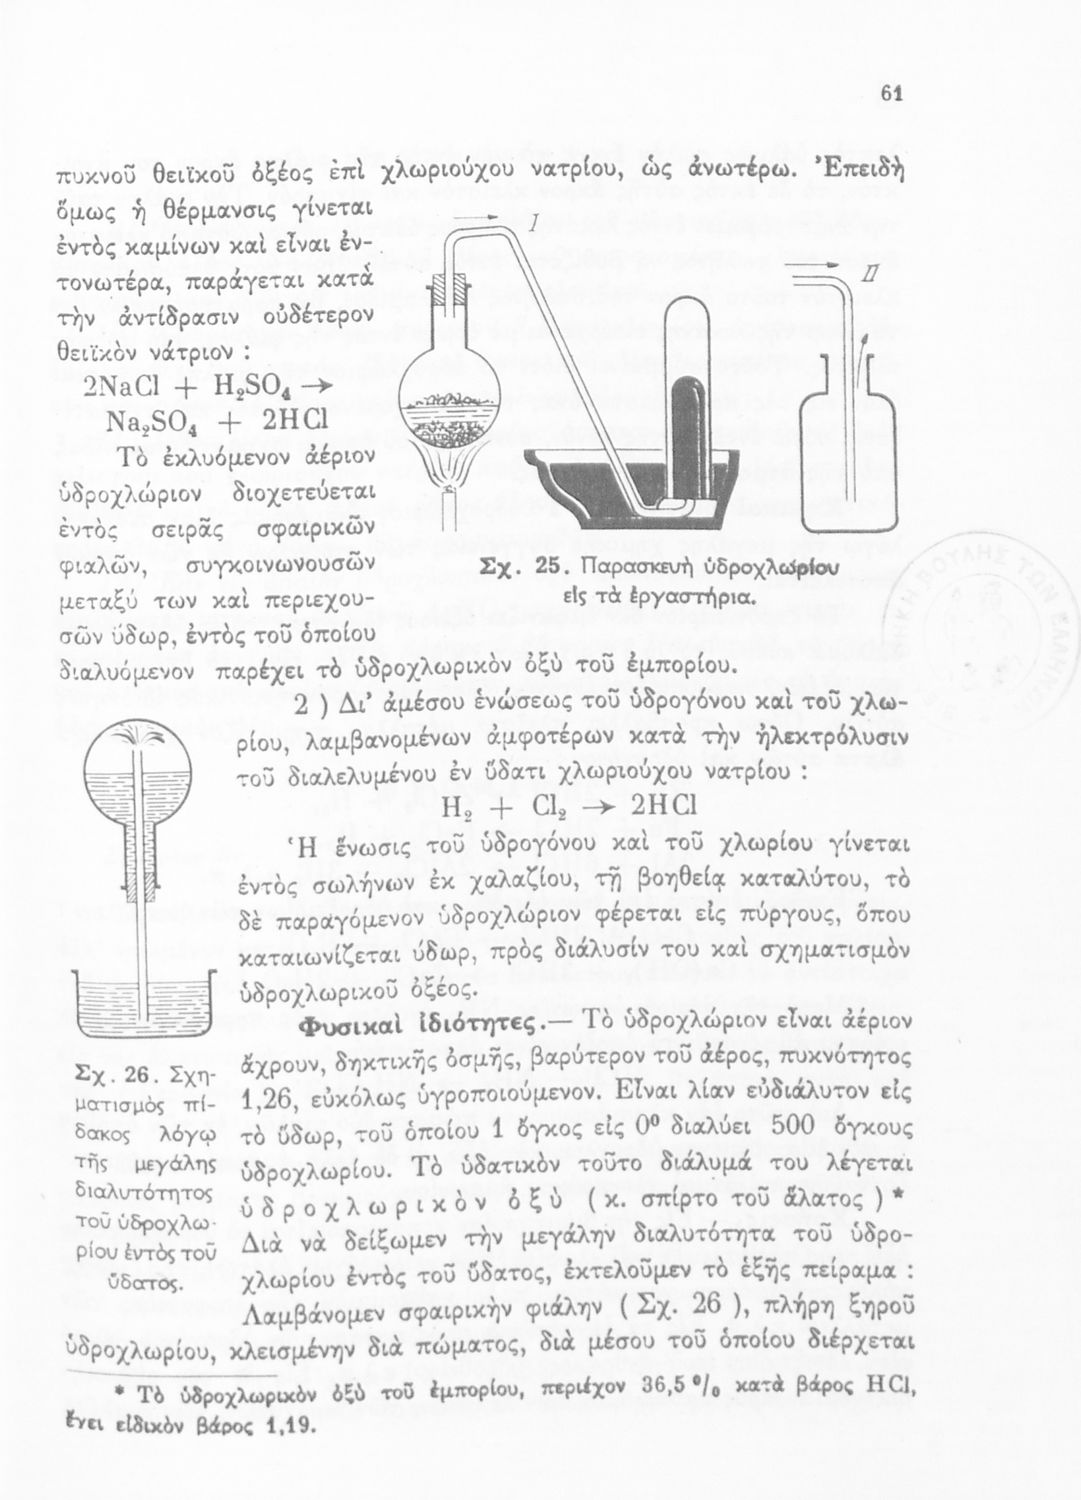 61
πυκνοῦ θειϊκοῦ ὀξέος ἐπὶ χλωριούχου νατρίου, ὡς ἀνωτέρω. Ἐπειδὴ
ὅμως ἡ θέρμανσις γίνεται
ἐντὸς καμίνων καὶ εἶναι ἐν-
τονωτέρα, παράγεται κατὰ
τὴν ἀντίδρασιν οὐδέτερον
θειϊκὸν νάτριον :
2NaCl + H₂SO₄ →
Na₂SO₄ + 2HCl
Τὸ ἐκλυόμενον ἀέριον
ὑδροχλώριον διοχετεύεται
ἐντὸς σειρᾶς σφαιρικῶν
φιαλῶν, συγκοινωνουσῶν
μεταξύ των καὶ περιεχου-
σῶν ὕδωρ, ἐντὸς τοῦ ὁποίου
I
II
Σχ. 25. Παρασκευὴ ὑδροχλωρίου
εἰς τὰ ἐργαστήρια.
διαλυόμενον παρέχει τὸ ὑδροχλωρικὸν ὀξὺ τοῦ ἐμπορίου.
2 ) Δι' ἀμέσου ἑνώσεως τοῦ ὑδρογόνου καὶ τοῦ χλω-
ρίου, λαμβανομένων ἀμφοτέρων κατὰ τὴν ἠλεκτρόλυσιν
τοῦ διαλελυμένου ἐν ὕδατι χλωριούχου νατρίου :
H₂ + Cl₂ → 2HCl
Ἡ ἕνωσις τοῦ ὑδρογόνου καὶ τοῦ χλωρίου γίνεται
ἐντὸς σωλήνων ἐκ χαλαζίου, τῇ βοηθείᾳ καταλύτου, τὸ
δὲ παραγόμενον ὑδροχλώριον φέρεται εἰς πύργους, ὅπου
καταιωνίζεται ὕδωρ, πρὸς διάλυσίν του καὶ σχηματισμὸν
ὑδροχλωρικοῦ ὀξέος.
Φυσικαὶ ἰδιότητες.— Τὸ ὑδροχλώριον εἶναι ἀέριον
ἄχρουν, δηκτικῆς ὀσμῆς, βαρύτερον τοῦ ἀέρος, πυκνότητος
1,26, εὐκόλως ὑγροποιούμενον. Εἶναι λίαν εὐδιάλυτον εἰς
τὸ ὕδωρ, τοῦ ὁποίου 1 ὄγκος εἰς 0⁰ διαλύει 500 ὄγκους
ὑδροχλωρίου. Τὸ ὑδατικὸν τοῦτο διάλυμά του λέγεται
ὑδροχλωρικὸν ὀξὺ ( κ. σπίρτο τοῦ ἅλατος ) *
Διὰ νὰ δείξωμεν τὴν μεγάλην διαλυτότητα τοῦ ὑδρο-
χλωρίου ἐντὸς τοῦ ὕδατος, ἐκτελοῦμεν τὸ ἑξῆς πείραμα :
Λαμβάνομεν σφαιρικὴν φιάλην ( Σχ. 26 ), πλήρη ξηροῦ
Σχ. 26. Σχη-
ματισμὸς πί-
δακος λόγῳ
τῆς μεγάλης
διαλυτότητος
τοῦ ὑδροχλω-
ρίου ἐντὸς τοῦ
ὕδατος.
ὑδροχλωρίου, κλεισμένην διὰ πώματος, διὰ μέσου τοῦ ὁποίου διέρχεται
* Τὸ ὑδροχλωρικὸν ὀξὺ τοῦ ἐμπορίου, περιέχον 36,5 ⁰/₀ κατὰ βάρος HCl,
ἔχει εἰδικὸν βάρος 1,19.
ΒΟΥΛΗΣ ΤΩΝ ΕΛΛΗΝΩΝ